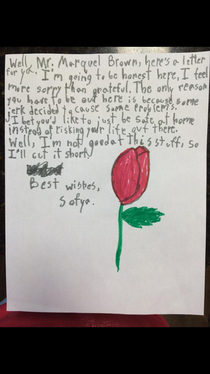 Well, Mr. Marquel Brown, here's a letter
for ya. I'm going to be honest here, I feel
more sorry than grateful. The only reason
you have to be out here is because some
jerk decided to cause some problems.
I bet you'd like to just be safe at home
instead of risking your life out there.
Well, I'm not good at this stuff, so
I'll cut it short.
Best wishes,
Safya.